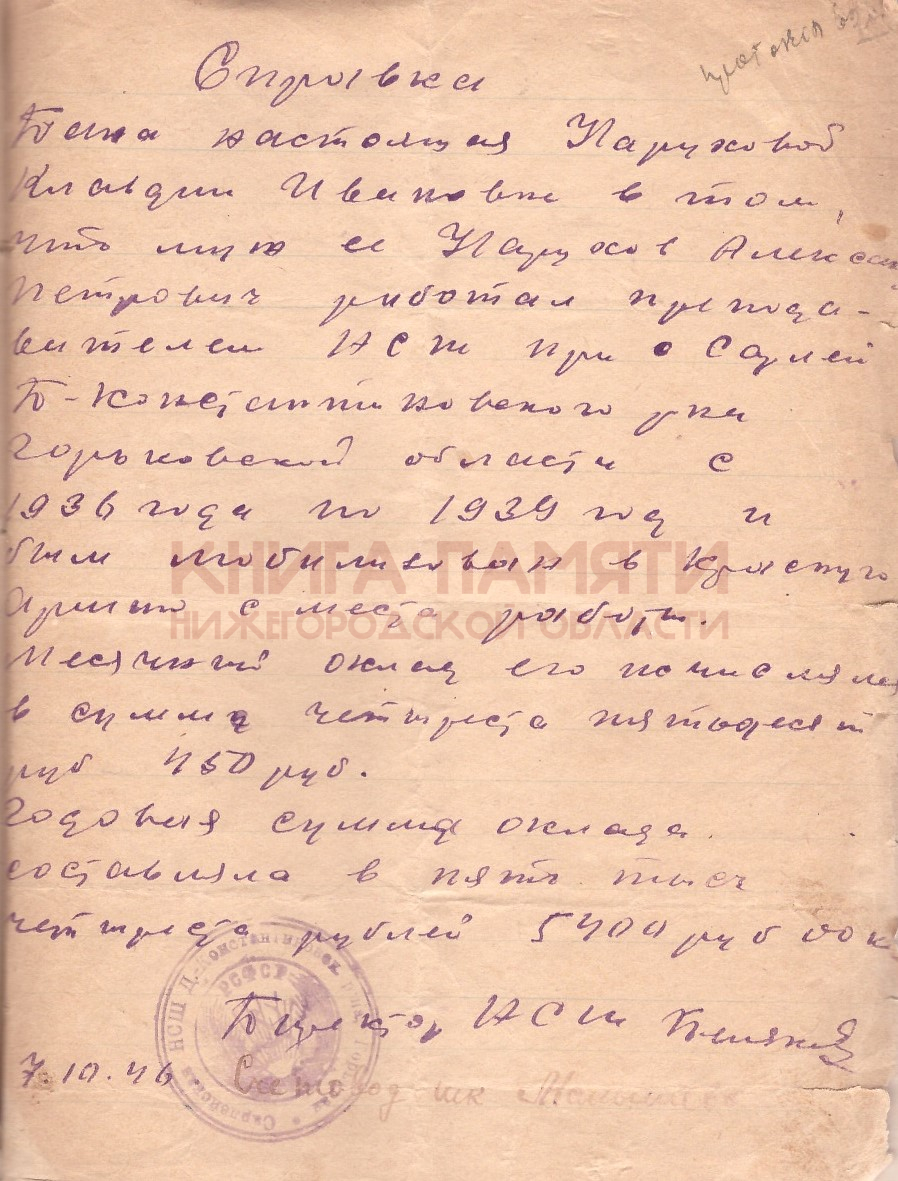 Справка
Дана настоящая Паруховой
Клавдии Ивановне в том,
что муж ее Парухов Алексан
Петрович работал препода-
вителем НСШ при с Сарлей
Д-Константиновского р-на
Горьковской области с
1936 года по 1939 год и
был мобилизован в Красную
Армию с места работы.
КНИГА ПАМЯТИ
НИЖЕГОРОДСКОЙ ОБЛАСТИ
Месячный оклад его исчислялся
в сумме четыреста пятьдесят
руб 450 руб.
Годовая сумма оклада
составляла в пять тысяч
четыреста рублей 5400 руб 00 к
Директор НСШ
7.10.46
РСФСР
НСШ Д-Константиновск